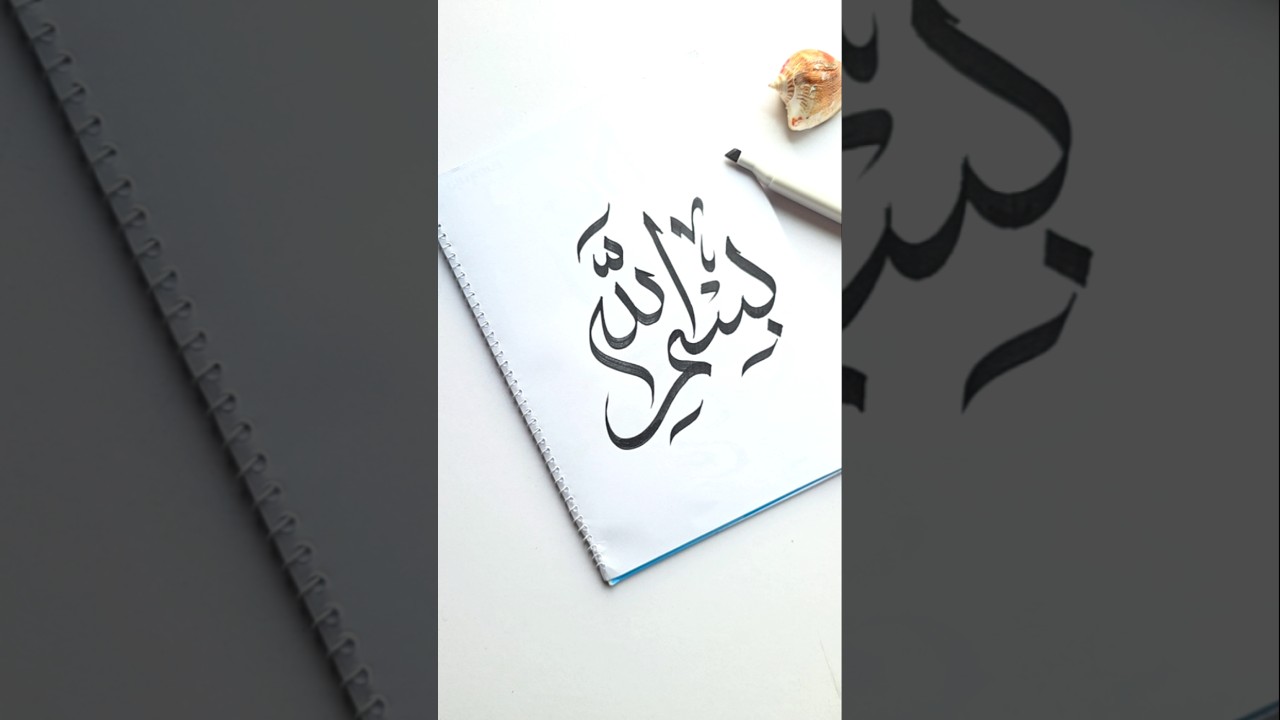 بِسْمِ اللَّه